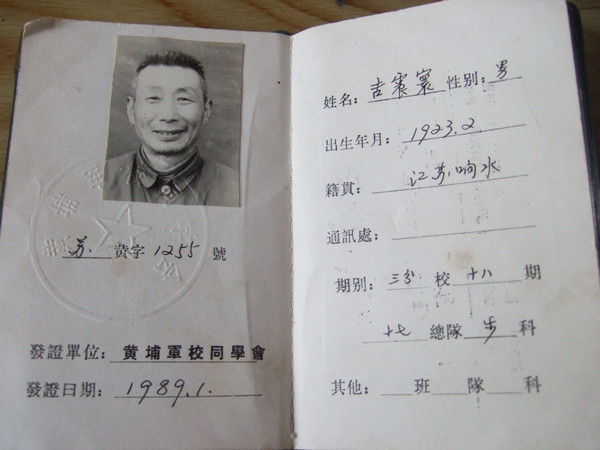 苏 黄字 1255 號
發證單位: 黄埔軍校同學會
發證日期: 1989.1.
姓名: 吉震寰 性别: 男
出生年月: 1923.2.
籍貫: 江苏响水
通訊處:
期别: 三分 校 十八 期
十七 總隊 步 科
其他: 班 隊 科